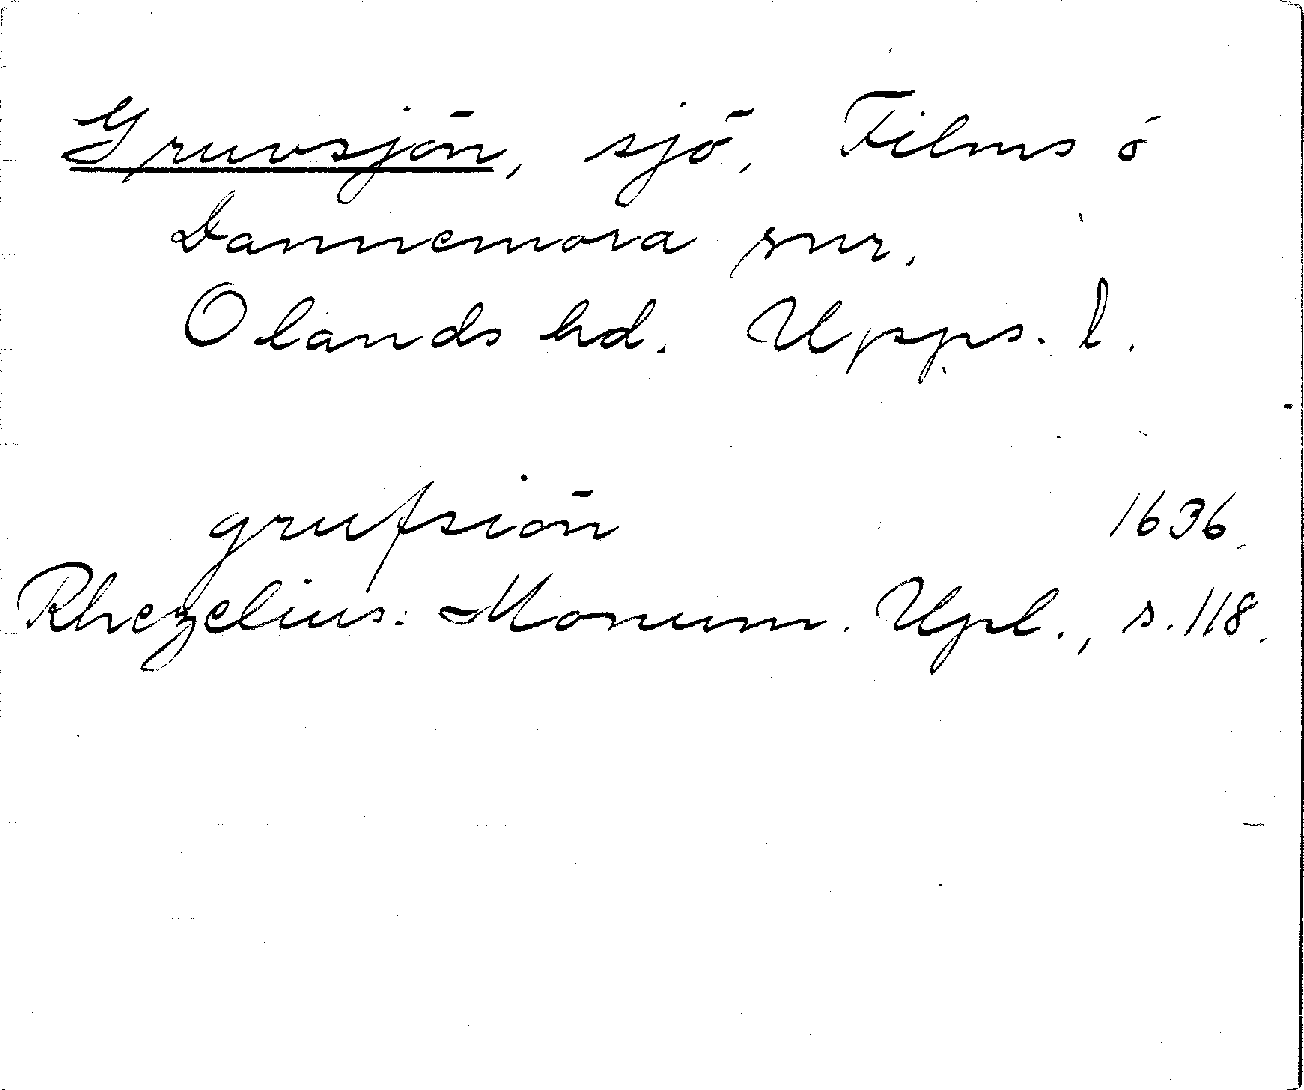 Gruvsjön, sjö, Films o
Dannemora snr,
Olands hd. Upps. l.
grufsiön 1636.
Rhezelius: Monum. Upl., s. 118.